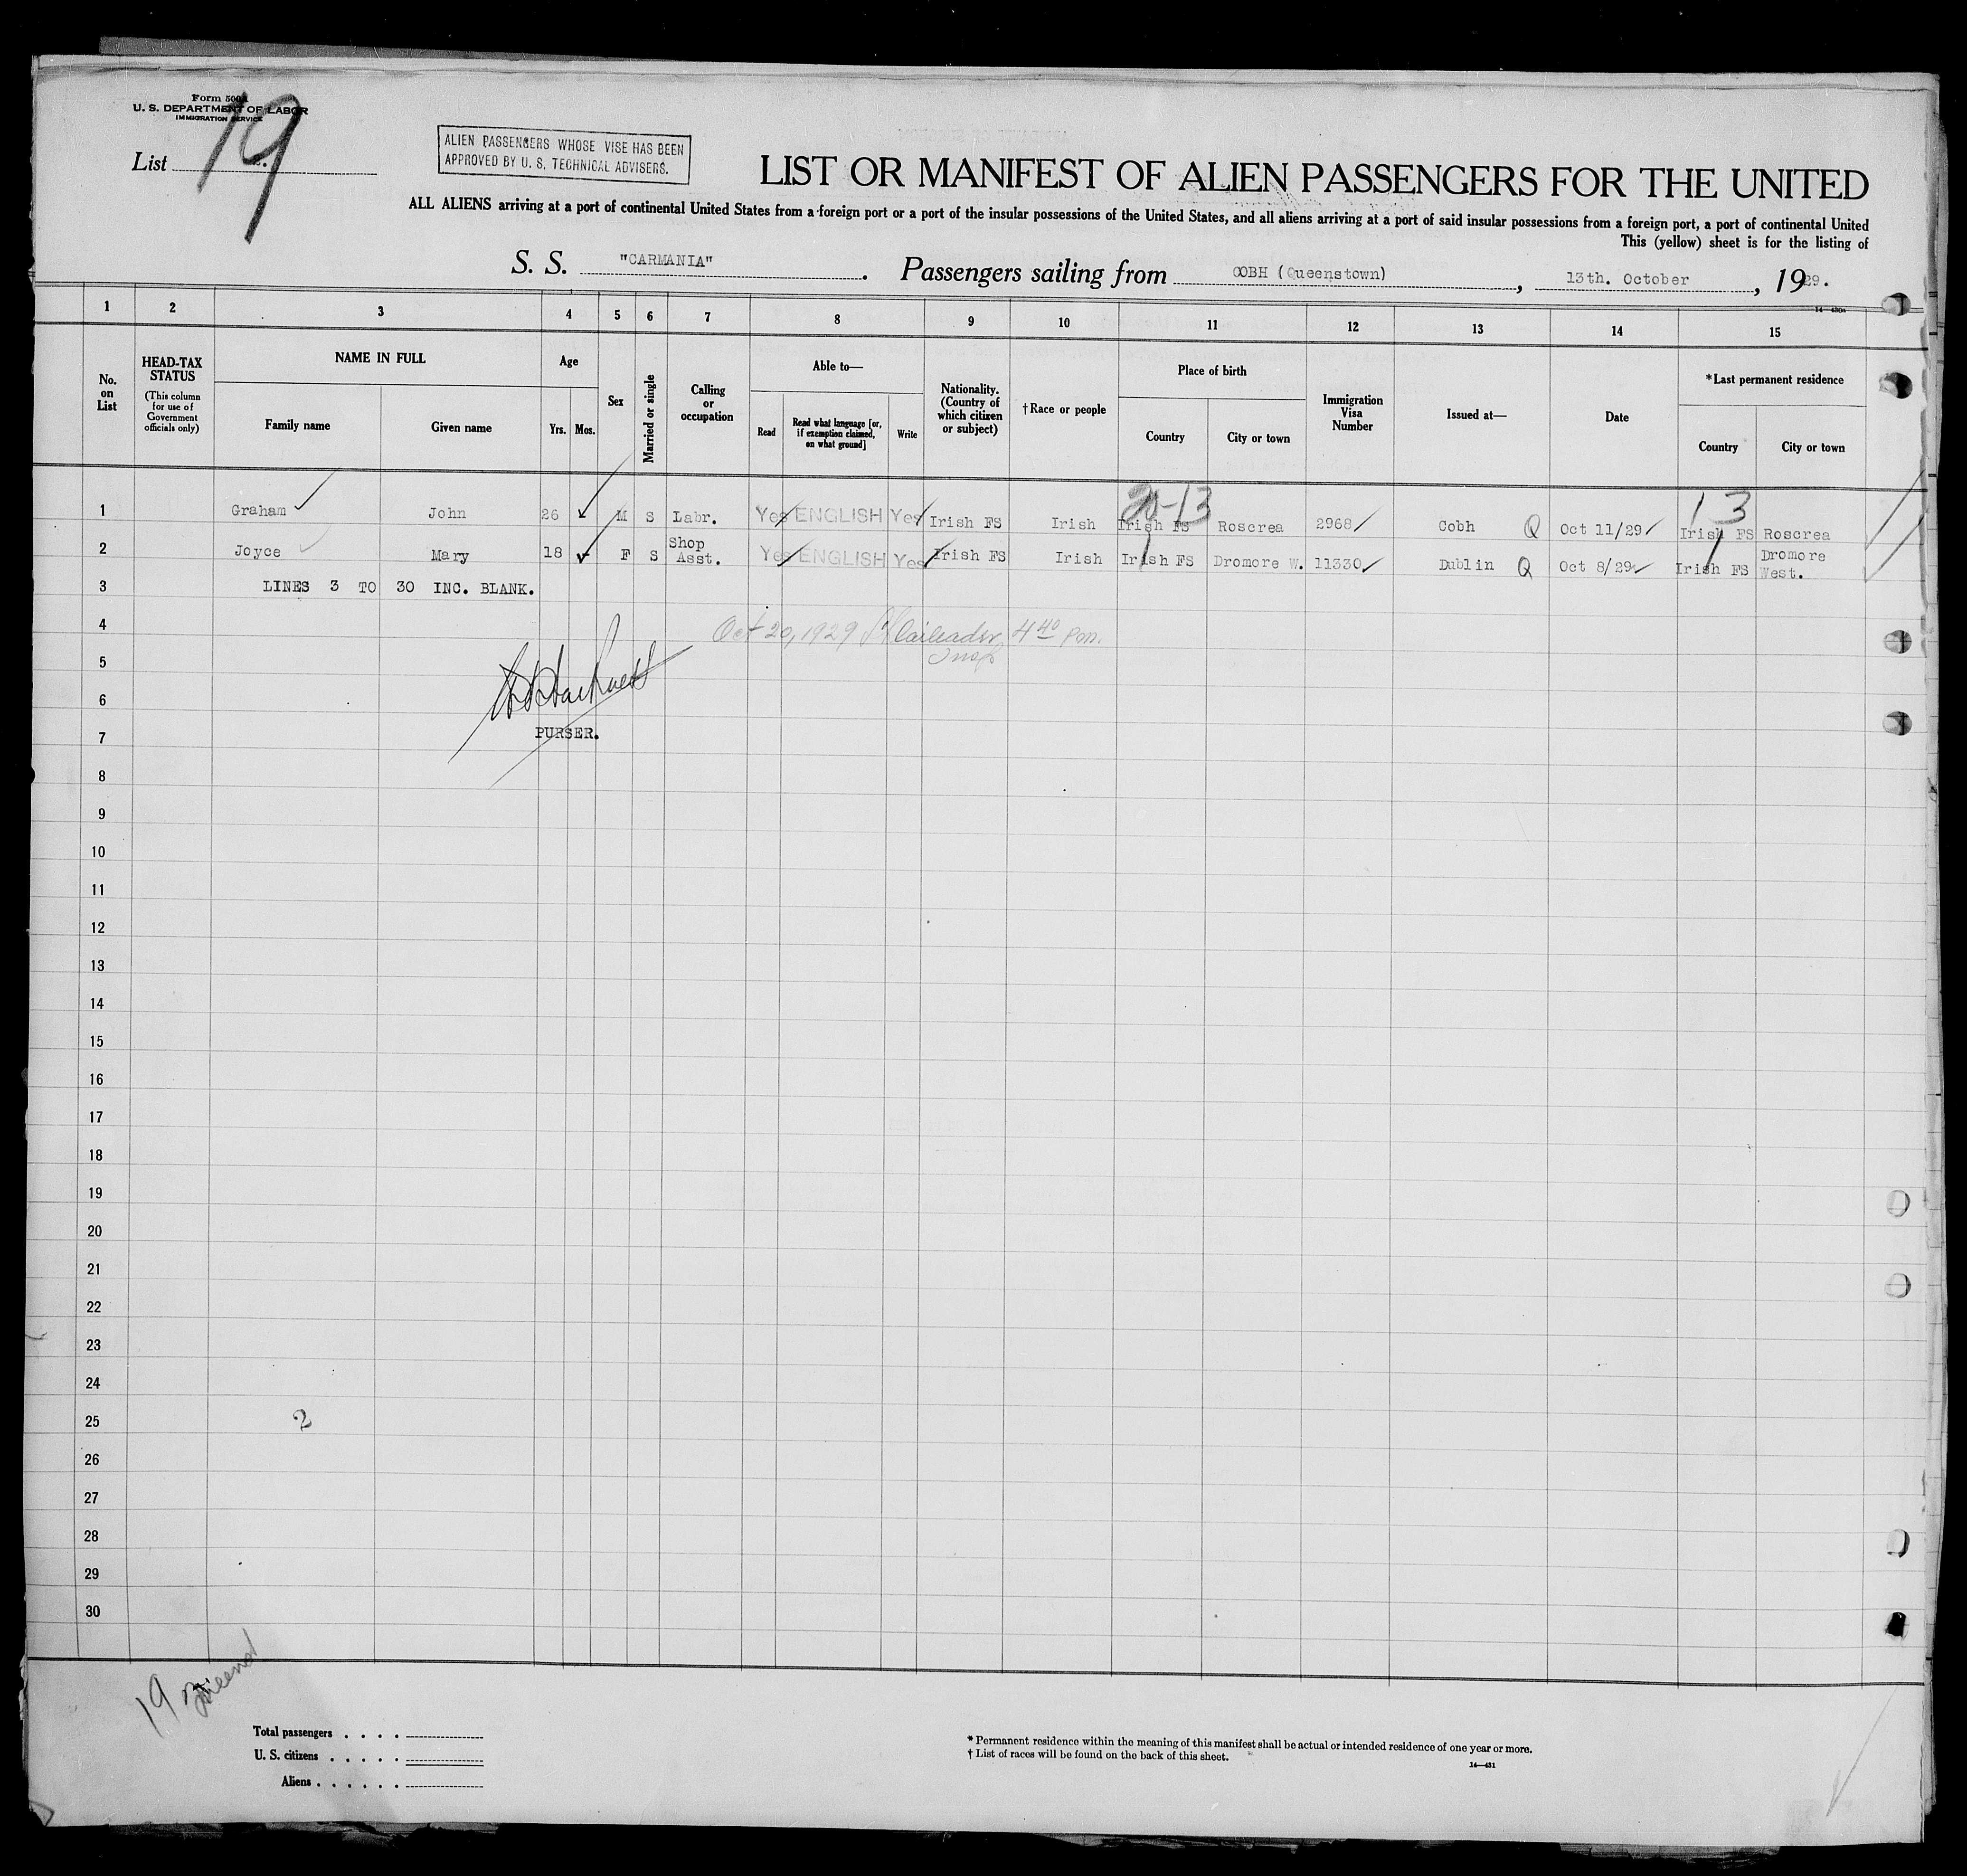 Form 500A
U. S. DEPARTMENT OF LABOR
IMMIGRATION SERVICE
List 19
ALIEN PASSENGERS WHOSE VISE HAS BEEN
APPROVED BY U. S. TECHNICAL ADVISERS.
LIST OR MANIFEST OF ALIEN PASSENGERS FOR THE UNITED
ALL ALIENS arriving at a port of continental United States from a foreign port or a port of the insular possessions of the United States, and all aliens arriving at a port of said insular possessions from a foreign port, a port of continental United
This (yellow) sheet is for the listing of
S. S. "CARMANIA". Passengers sailing from COBH (Queenstown), 13th. October, 1929.
14—430a
1 2 3 4 5 6 7 8 9 10 11 12 13 14 15
No. on List
HEAD-TAX STATUS (This column for use of Government officials only)
NAME IN FULL
Family name Given name
Age
Yrs. Mos.
Sex
Married or single
Calling or occupation
Able to—
Read Read what language [or, if exemption claimed, on what ground] Write
Nationality. (Country of which citizen or subject)
†Race or people
Place of birth
Country City or town
Immigration Visa Number
Issued at—
Date
*Last permanent residence
Country City or town
20-13 13
1 Graham John 26 M S Labr. Yes ENGLISH Yes Irish FS Irish Irish FS Roscrea 2968 Cobh Q Oct 11/29 Irish FS Roscrea
2 Joyce Mary 18 F S Shop Asst. Yes ENGLISH Yes Irish FS Irish Irish FS Dromore W. 11330 Dublin Q Oct 8/29 Irish FS Dromore West.
3 LINES 3 TO 30 INC. BLANK.
4 Oct 20, 1929 4 40 pm.
5 Insp
6
7 PURSER.
8
9
10
11
12
13
14
15
16
17
18
19
20
21
22
23
24
25 2
26
27
28
29
30
19
Total passengers . . . .
U. S. citizens . . . . .
Aliens . . . . . .
* Permanent residence within the meaning of this manifest shall be actual or intended residence of one year or more.
† List of races will be found on the back of this sheet.
14—431